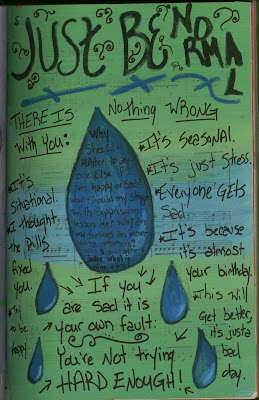 JUST BE NORMAL
THERE IS Nothing WRONG
With you:
Why
Should it
MAtter to any
one Else if I
am happy or sad?
why should my struggle
with depression
lesson
my feelings
•It's SEASONAL.
•It's just StRess.
•Everyone GEts
Sad.
•It's because
it's almost
your birthday.
•This will
Get better,
it's just a
bad
day.
•It's
situational.
•I thought
the pills
fixed
you.
•try
to be
happy
If you
are sad it is
your own fault:
You're Not trying
HARD ENOUGH!